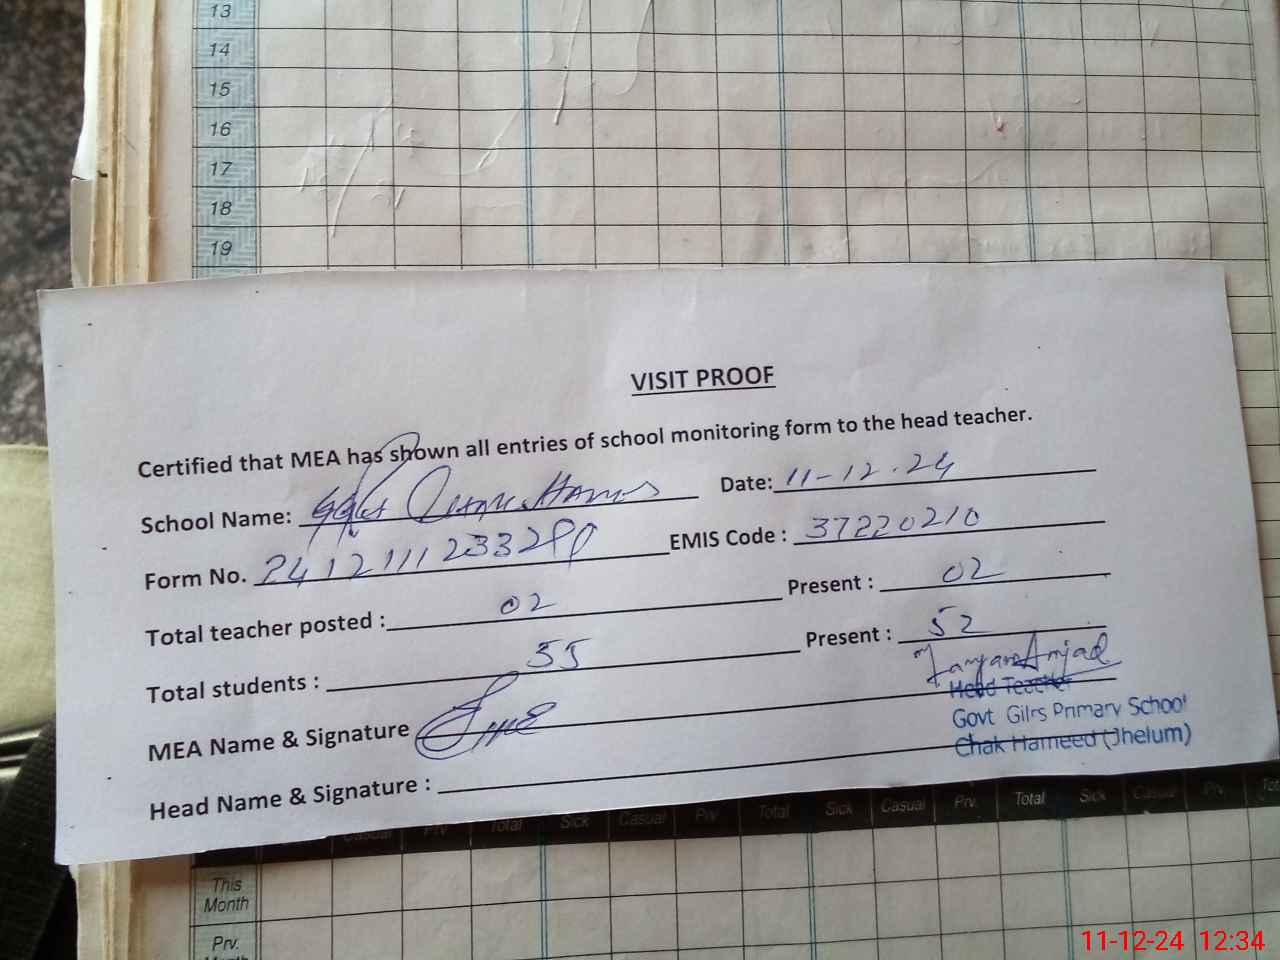 13
14
15
16
17
18
19
VISIT PROOF
Certified that MEA has shown all entries of school monitoring form to the head teacher.
School Name: Date: 11-12-24
Form No. EMIS Code : 37220210
Total teacher posted : 02 Present : 02
Total students : 55 Present : 52
MEA Name & Signature
Head Teacher
Govt Gilrs Primary School
Chak Hameed (Jhelum)
Head Name & Signature :
Casual Prv Total Sick Casual Prv Total Sick Casual Prv. Total Sick Casual Prv.
This
Month
Prv.
11-12-24 12:34